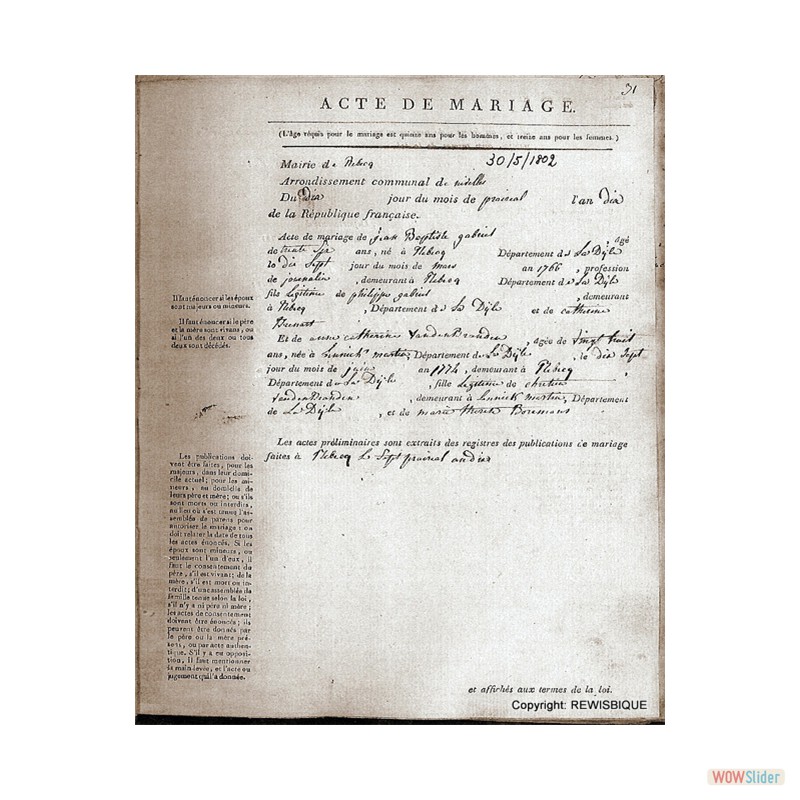 31
ACTE DE MARIAGE.
(L'âge réquis pour le mariage est quinze ans pour les hommes, et treize ans pour les femmes.)
30/5/1802
Mairie de Rebecq
Arrondissement communal de nivelles
Du dix jour du mois de prairial l'an dix
de la République française.
Acte de mariage de jean Baptiste gabriel âgé
de trente six ans, né à Rebecq Département de La Dijle
le dix sept jour du mois de mars an 1766, profession
de journalier, demeurant à Rebecq Département de La Dijle
fils legitime de philippe gabriel, demeurant
à Rebecq, Département de La Dijle et de catherine
Et de anne catherine VandenBranden, agée de vingt huit
ans, née à Lennick martin, Département de La Dijle, le dix sept
jour du mois de juin an 1774, demeurant à Rebecq
Département de La Dijle, fille legitime de
VandenBranden, demeurant à Lennick martin, Département
de La Dijle, et de marie therese Boremans
Les actes préliminaires sont extraits des registres des publications de mariage
faites à Rebecq le Sept prairial an dix
Il faut énoncer si les époux
sont majeurs ou mineurs.
Il faut énoncer si le père
et la mère sont vivans, ou
si l'un des deux ou tous
deux sont décédés.
Les publications doi-
vent être faites, pour les
majeurs, dans leur domi-
cile actuel; pour les mi-
neurs, au domicile de
leurs père et mère; ou s'ils
sont morts ou interdits,
au lieu où s'est tenue l'as-
semblée de parens pour
autoriser le mariage: on
doit relater la date de tous
les actes énoncés. Si les
époux sont mineurs, ou
seulement l'un d'eux, il
faut le consentement du
père, s'il est vivant; de la
mère, s'il est mort ou in-
terdit; d'une assemblée de
famille tenue selon la loi,
s'il n'y a ni père ni mère;
les actes de consentement
doivent être énoncés; ils
peuvent être donnés par
le père ou la mère pré-
sens, ou par acte authen-
tique. S'il y a eu opposi-
tion, il faut mentionner
la main-levée, et l'acte ou
jugement qui l'a donnée.
et affichés aux termes de la loi.
Copyright: REWISBIQUE
WOWSlider